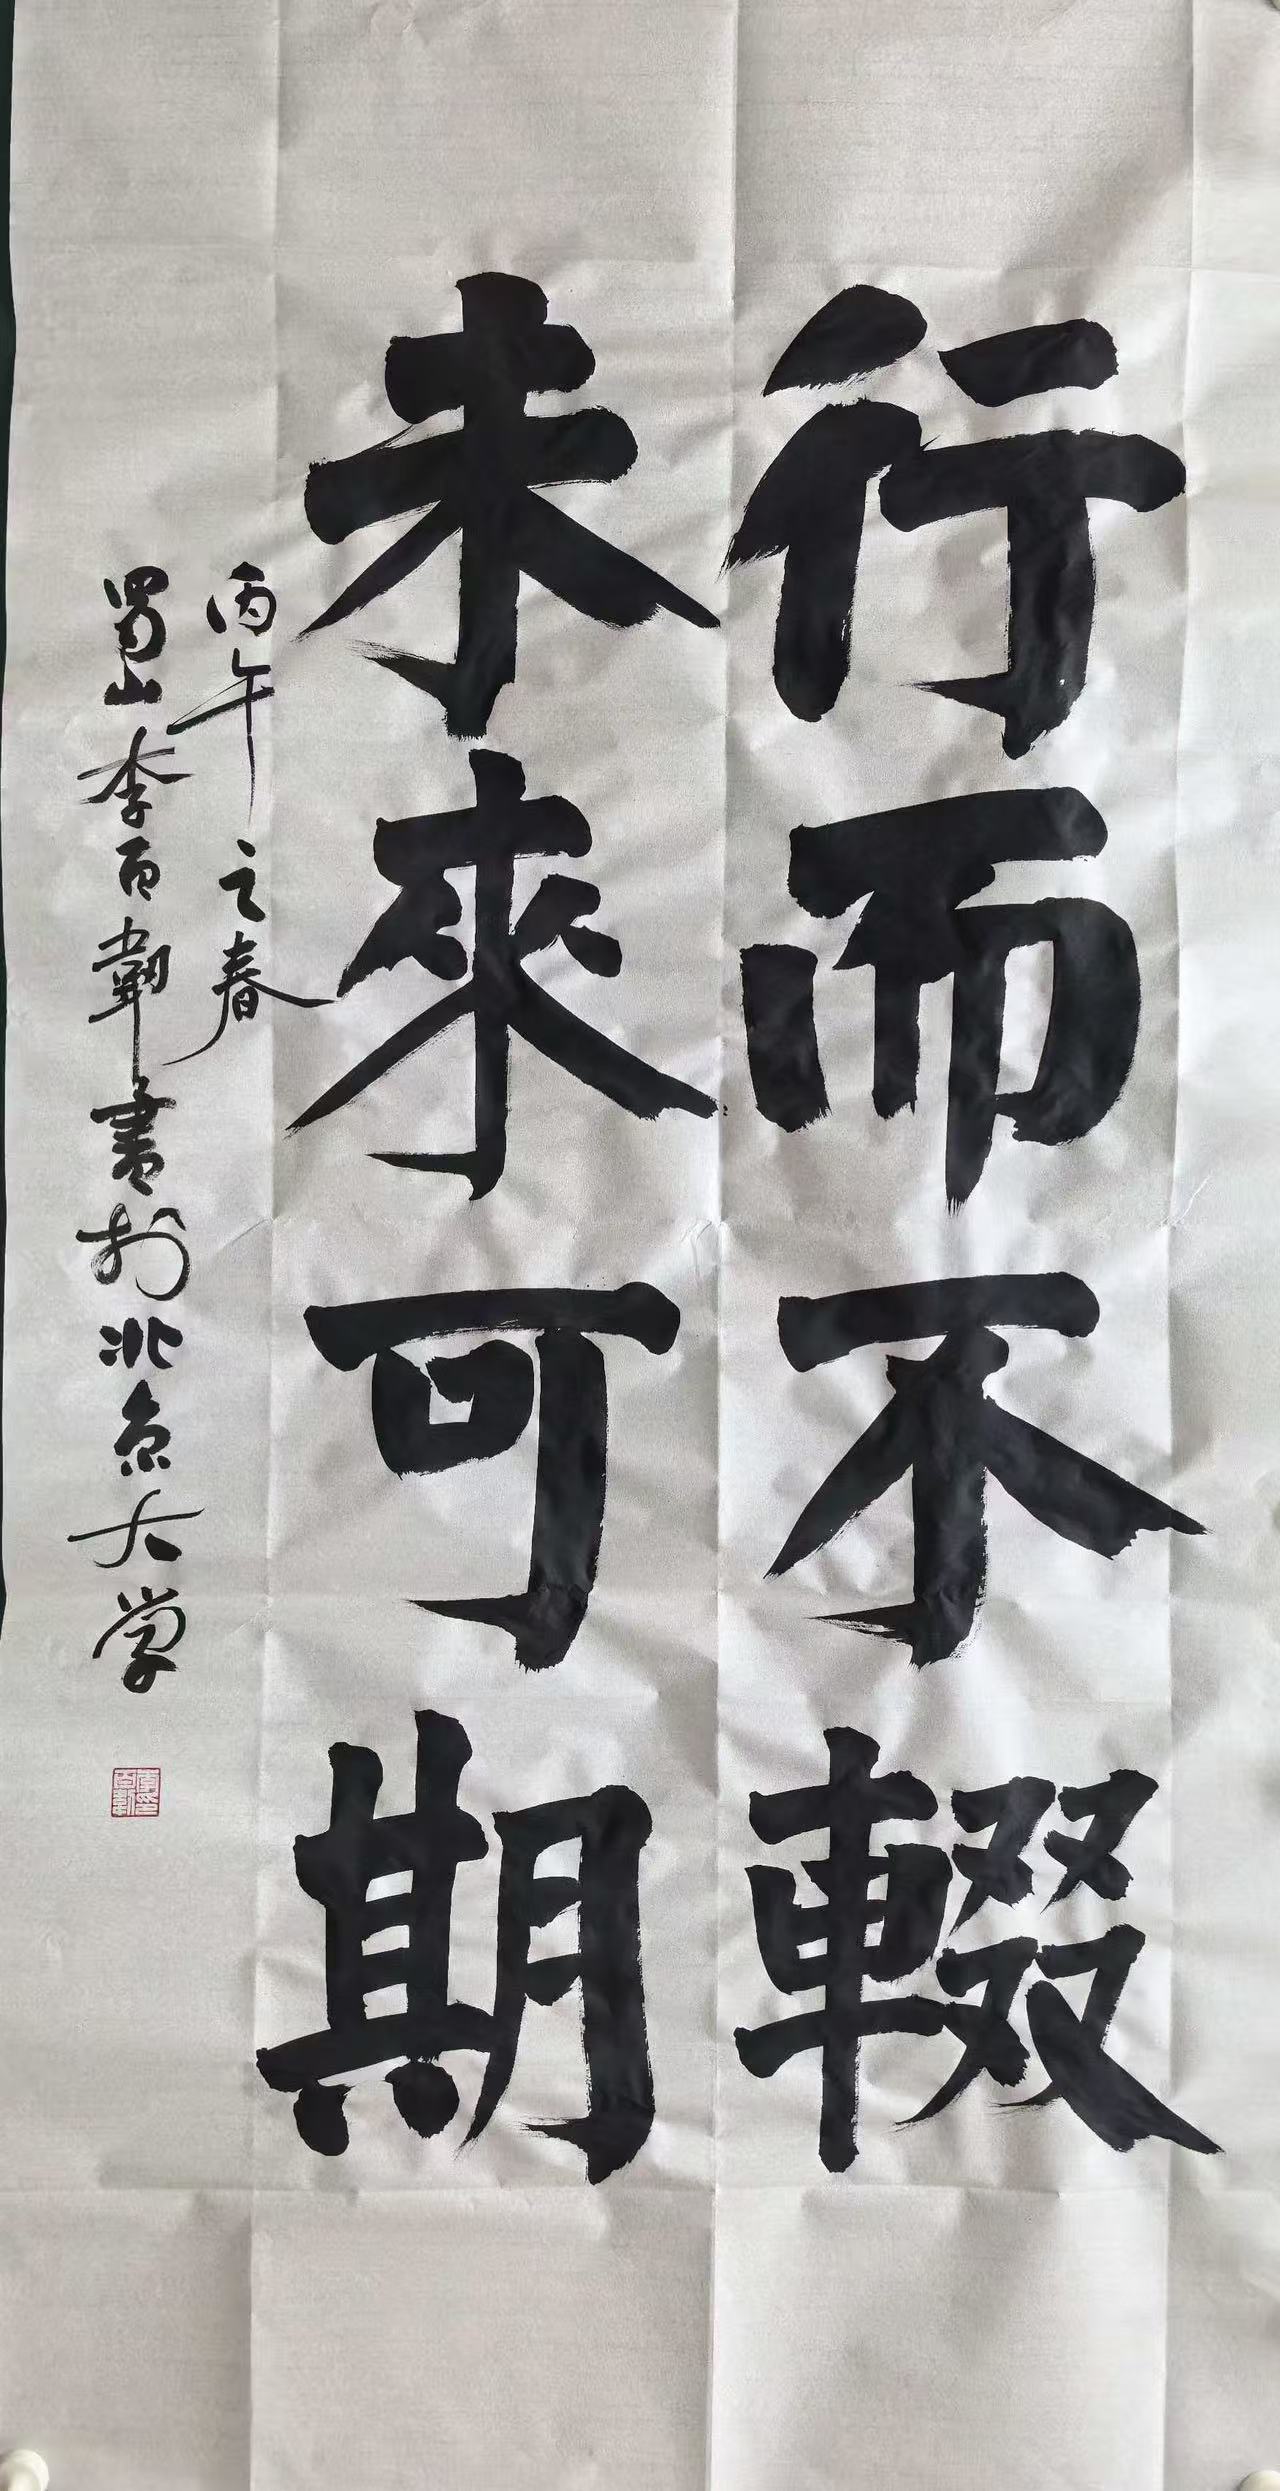 行而不輟
未來可期
丙午之春
蜀山李百韌書於北京大学